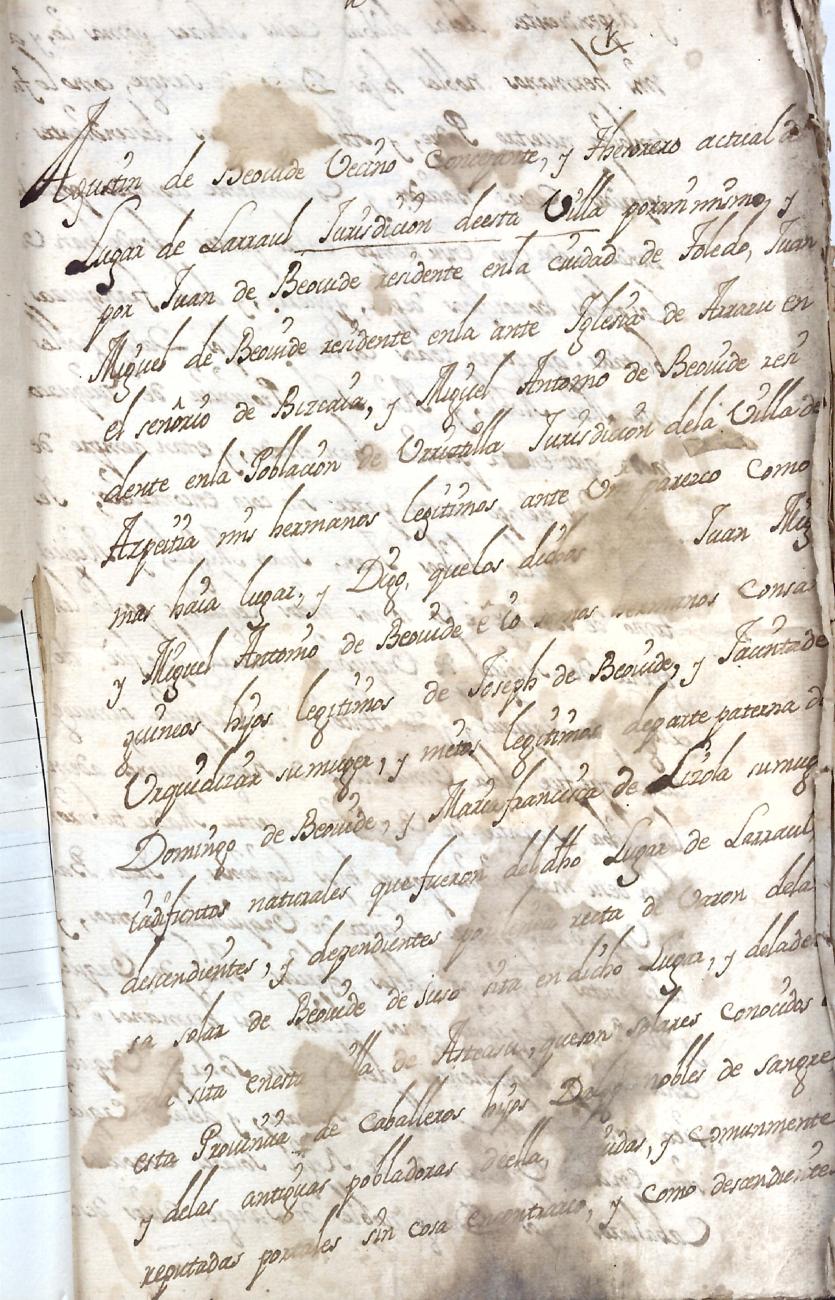 Agustin de Beovide Vecino Concejante, y Therrero actual de
Lugar de Larraul Jurisdicion deesta Villa por mi mismo, y
por Juan de Beovide residente enla ciudad de Toledo, Juan
Miguel de Beovide residente enla ante Iglesia de Arrazu en
el señorio de Bizcaia, y Miguel Antonio de Beovide resi
dente enla Poblacion de Urrestilla Jurisdicion dela Villa de
Azpeitia mis hermanos legitimos ante Vm parezco como
mas haia lugar, y Digo, quelos dichos Juan Mig
y Miguel Antonio de Beovide è Io somos hermanos consan
guineos hijos legitimos de Joseph de Beovide, y Jacinta de
Urquidizar sumuger, y nietos legitimos departe paterna de
Domingo de Beovide, y Maria francisca de Lizola sumug
ia difuntos naturales que fueron del dho Lugar de Larraul
descendientes, y dependientes por linea recta de Varon dela
sa solar de Beovide de suso sita en dicho Lugar, y dela de
sita enesta Villa de Asteasu, queson solares conocidos
esta Provincia de Caballeros hijos Dalgo nobles de sangre
y delas antiguas pobladoras deella, y comunmente
reputadas portales sin cosa encontrario, y como descendientes